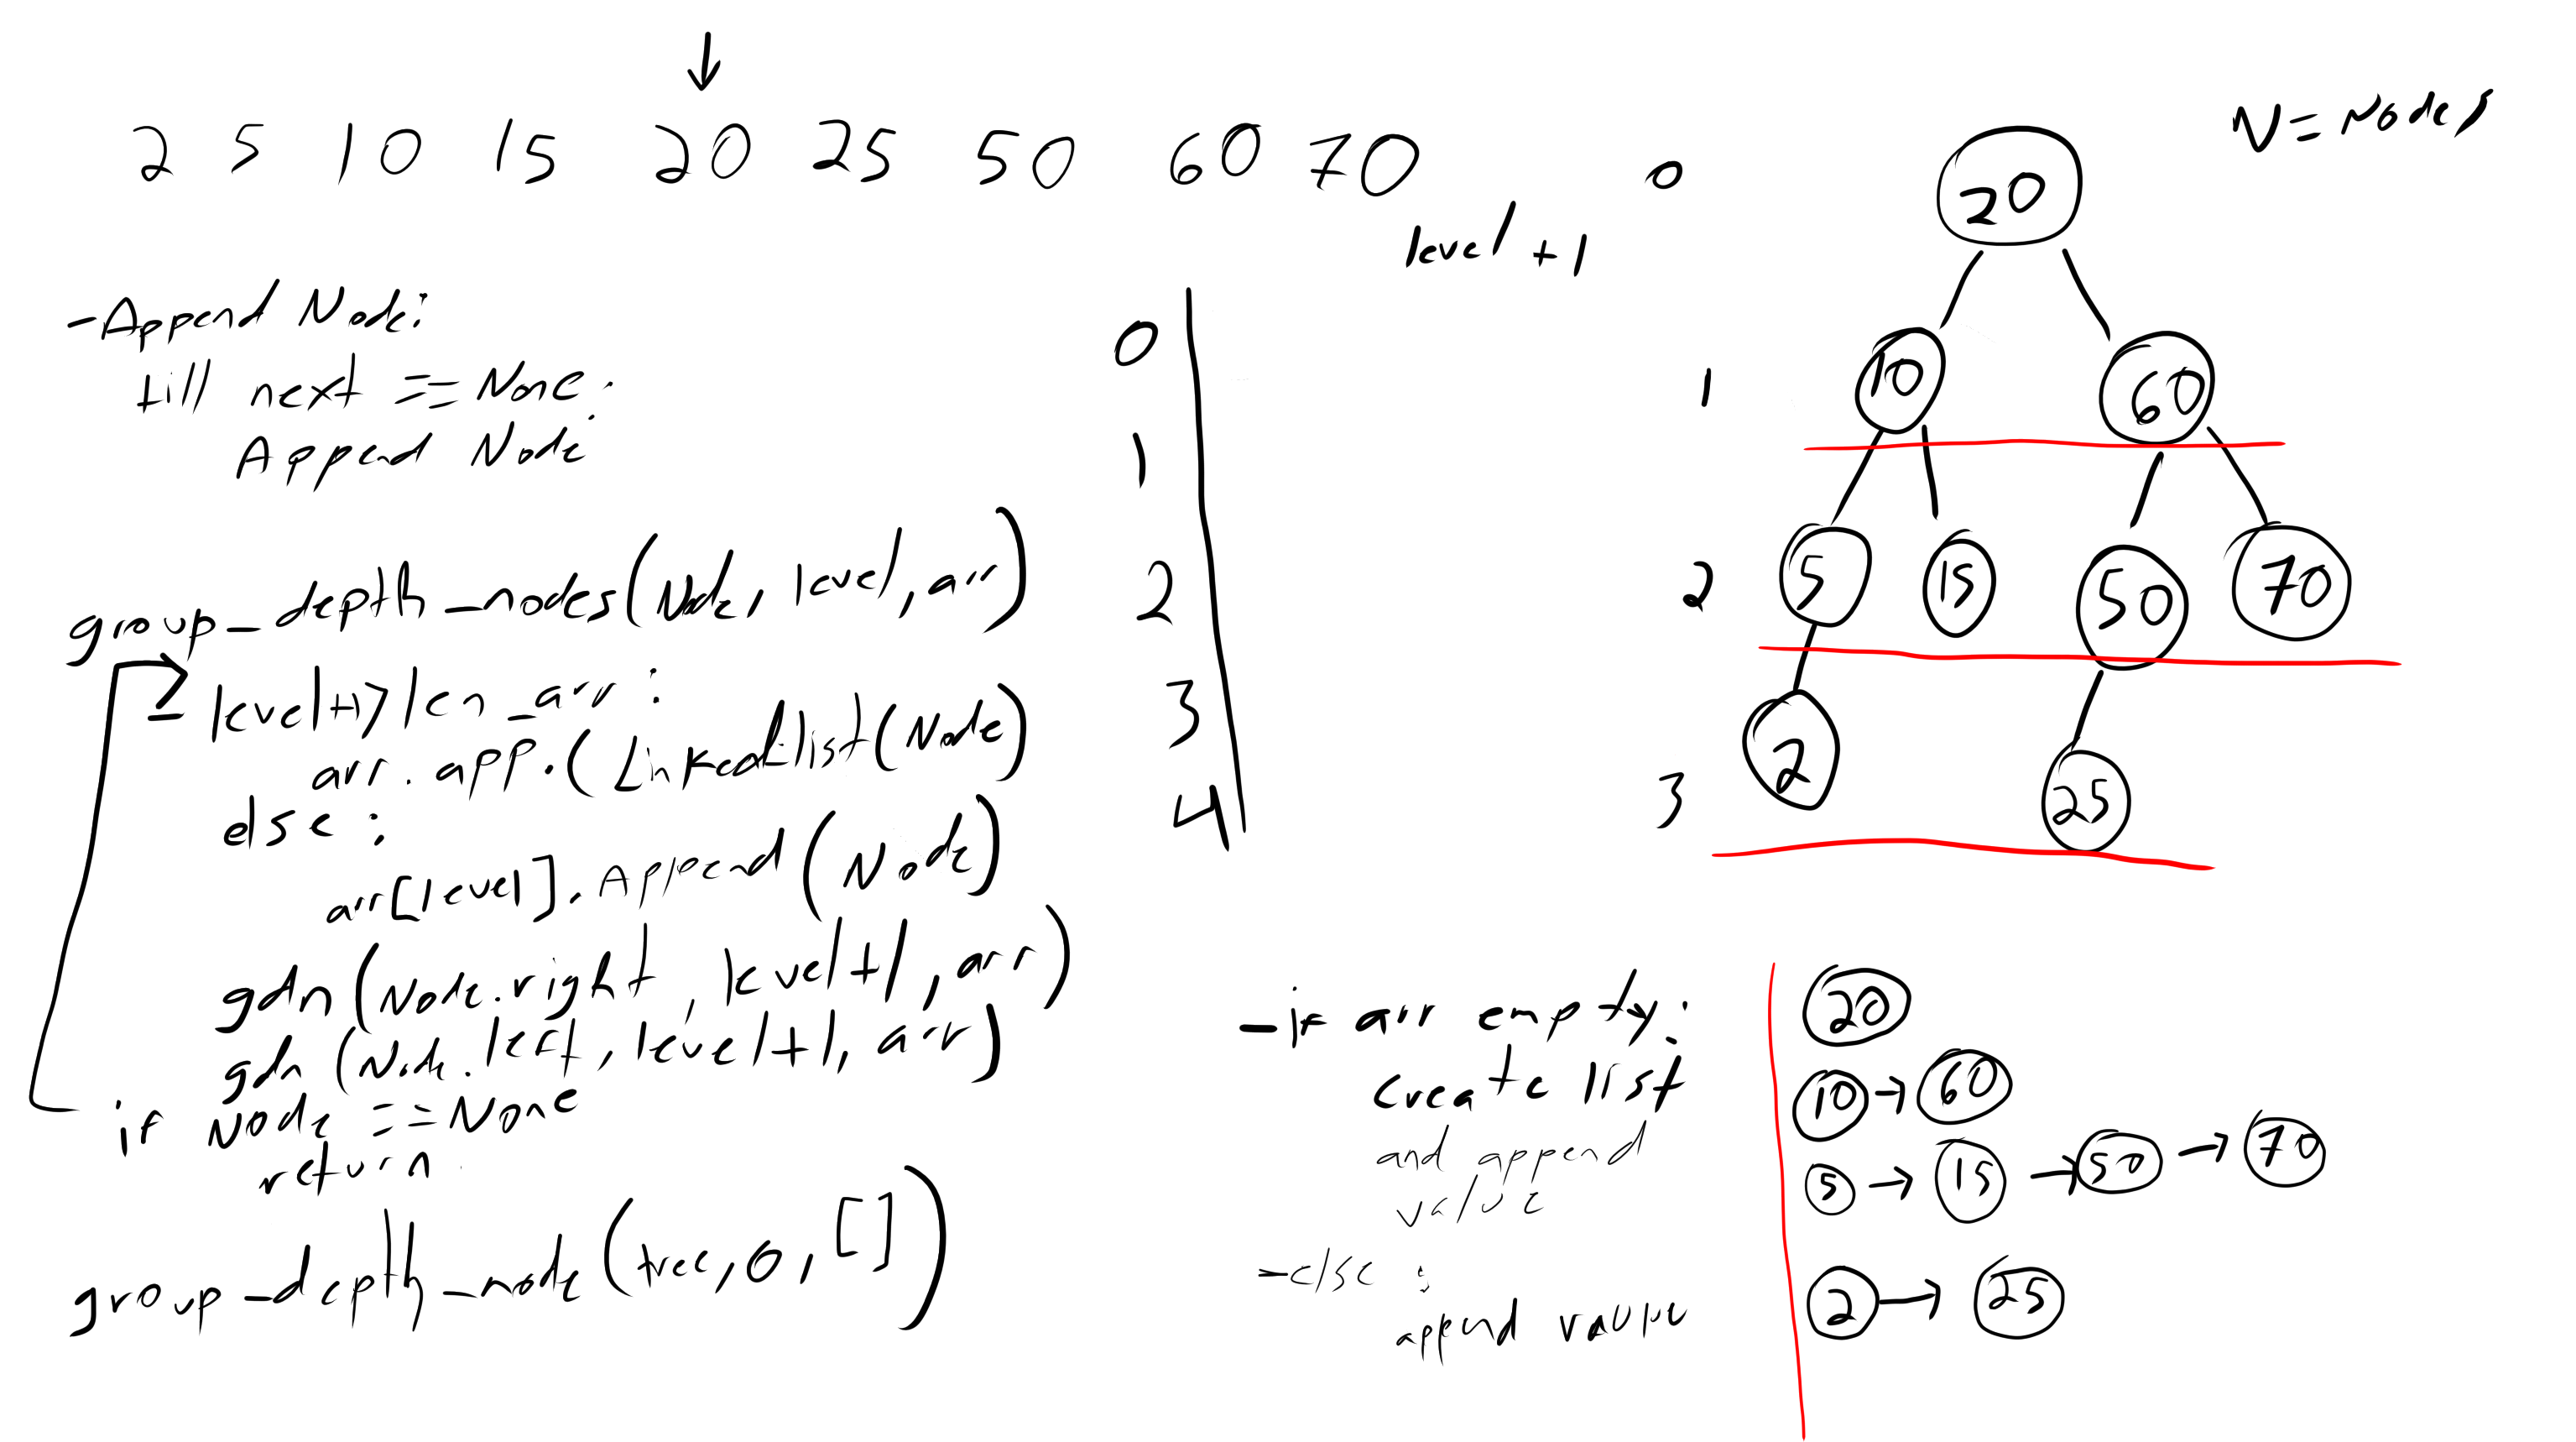 2 5 10 15 20 25 50 60 70
N = Nodes
level + 1
- Append Node:
till next == None:
Append Node
group_depth_nodes(Node, level, arr)
level+1 > len_arr :
arr. app. (Linkedlist(Node)
else :
arr[level]. Append (Node)
gdn (Node.right, level+1, arr)
gdn (Node.left, level+1, arr)
if Node == None
return
group_depth_node (tree, 0, [])
0
1
2
3
4
0
20
1
10 60
2
5 15 50 70
3
2 25
- if arr empty:
create list
and append
value
- else :
append value
20
10 → 60
5 → 15 → 50 → 70
2 → 25